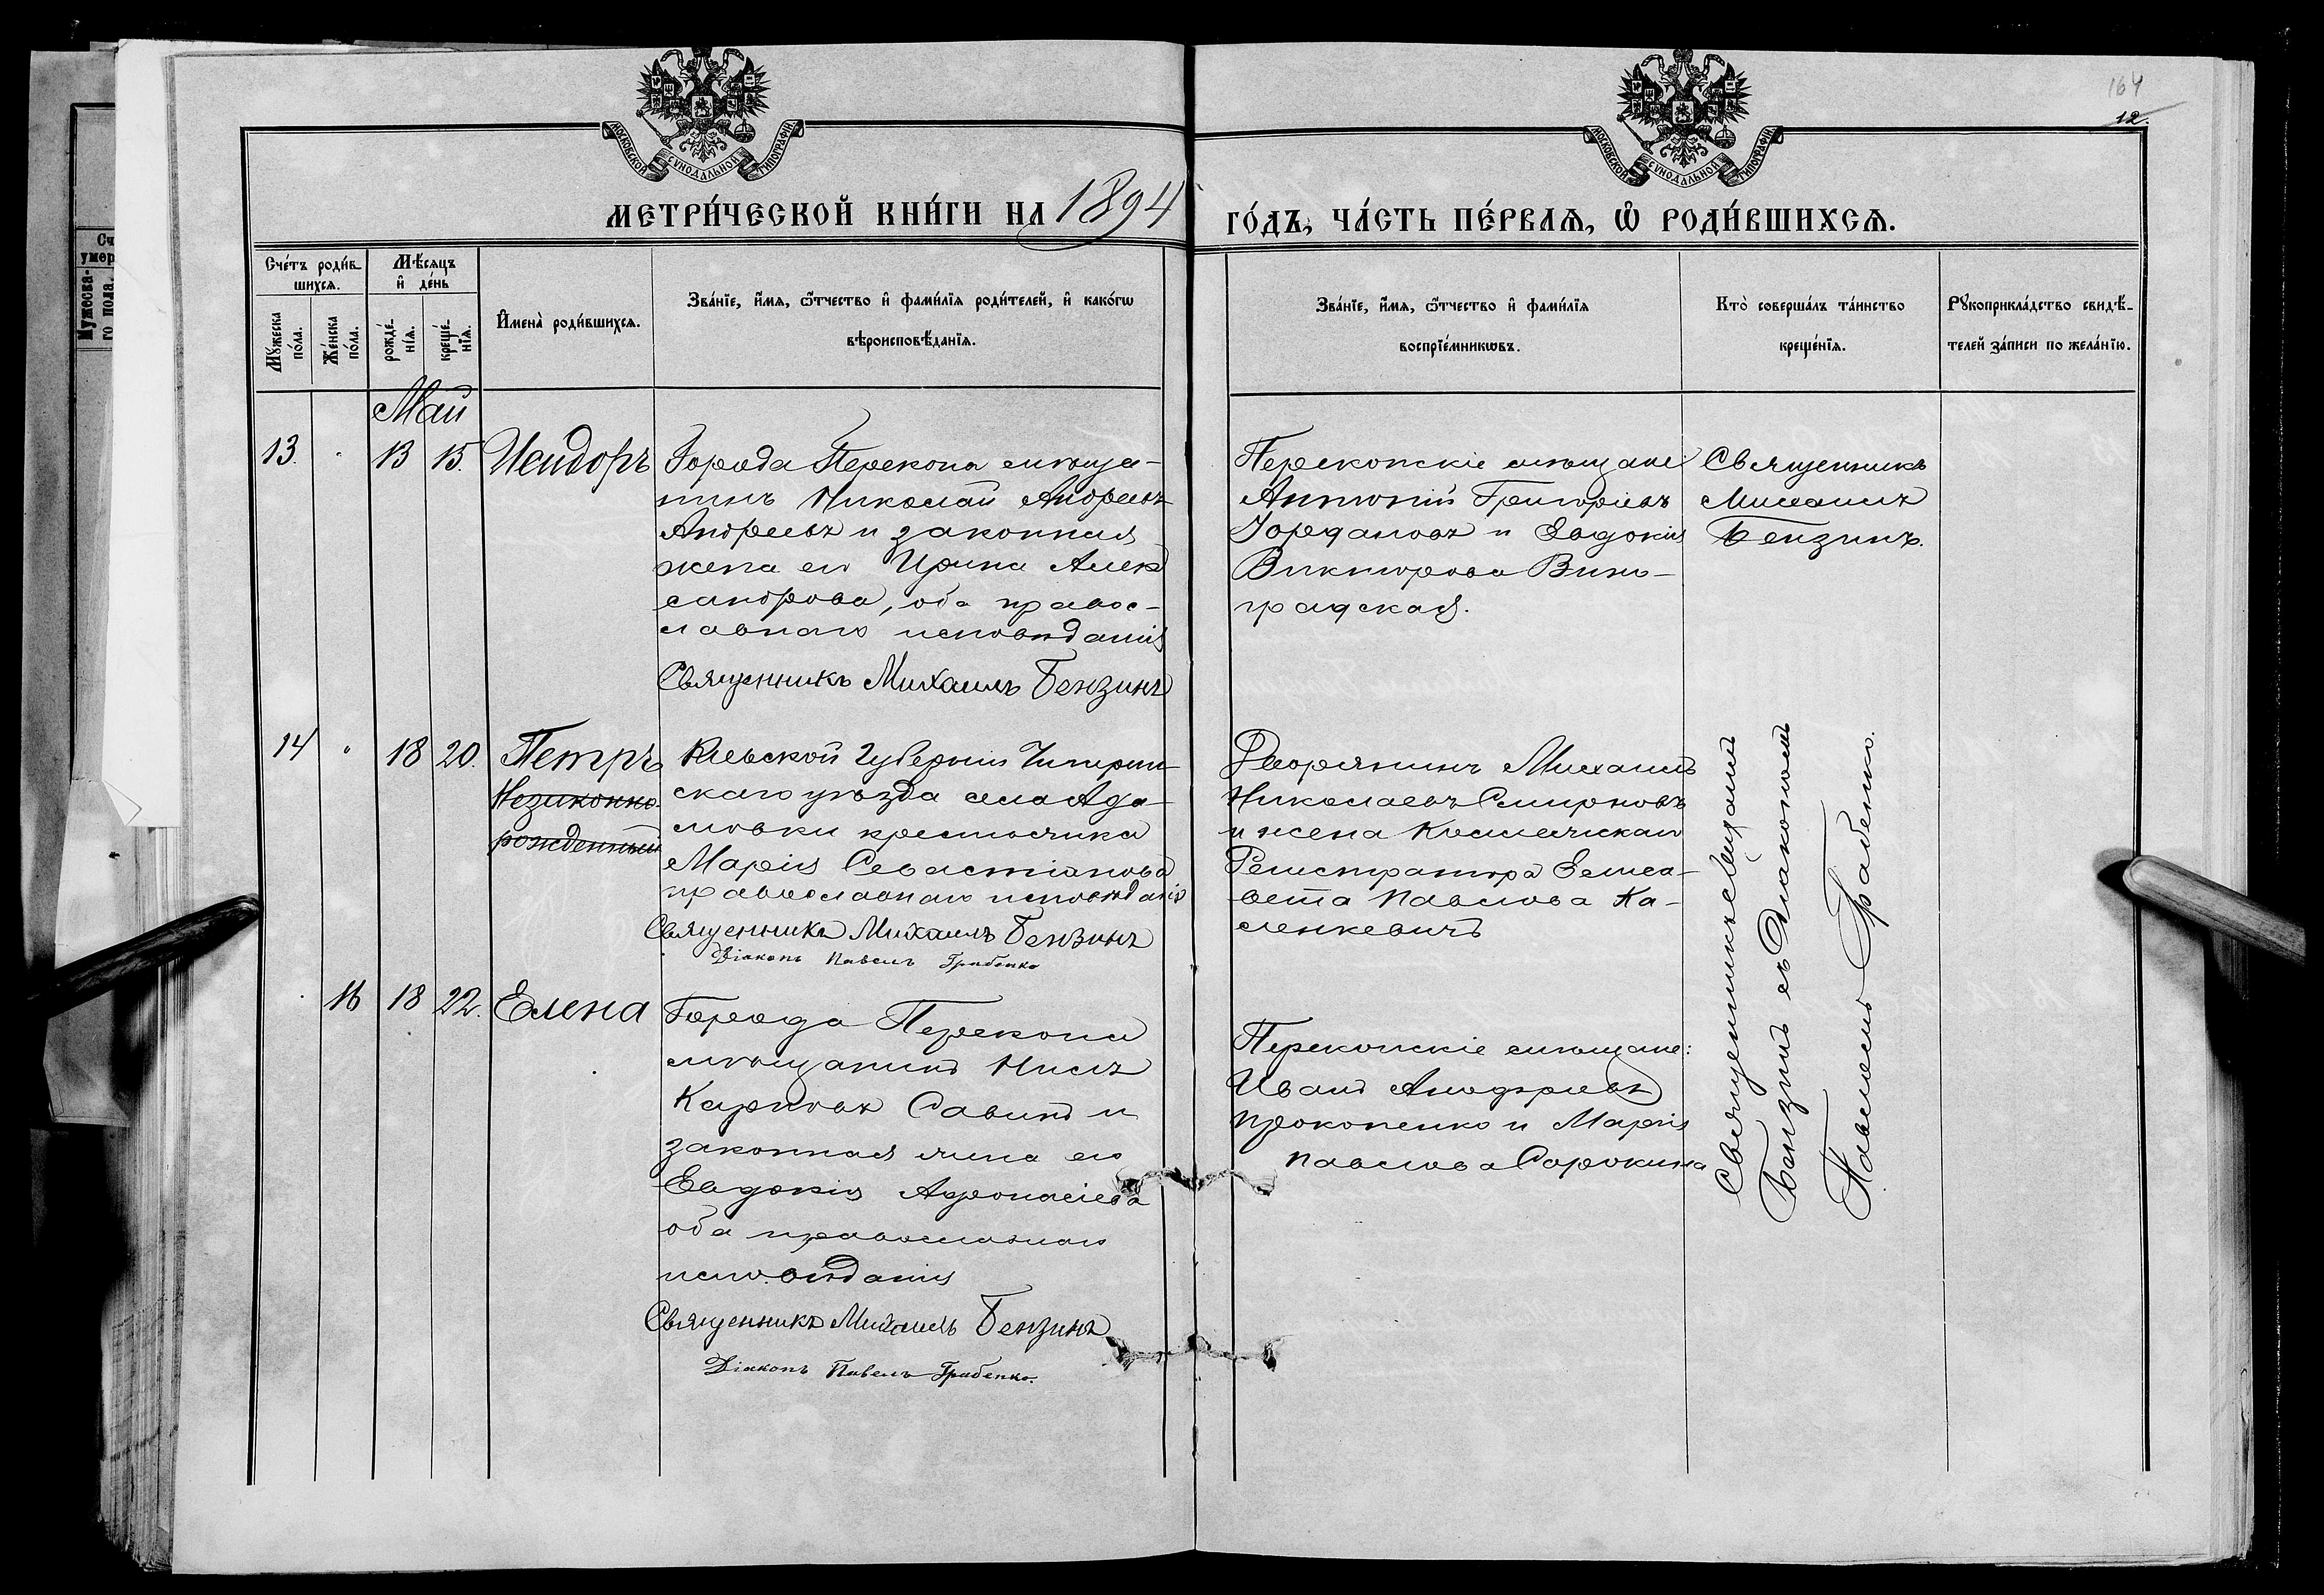 164
12.
МОСКОВСКОЙ СѴНОДАЛЬНОЙ ТИПОГРАФІИ
МОСКОВСКОЙ СѴНОДАЛЬНОЙ ТИПОГРАФІИ
МЕТРИ́ЧЕСКОЙ КНИ́ГИ НА 1894
ГО́ДЪ, ЧА́СТЬ ПЕ́РВАѦ, Ѽ РОДИ́ВШИХСѦ.
Сче́тъ роди́в-
шихсѧ.
Мѣ́сѧцъ
и҆ де́нь
Мꙋжеска по́ла.
Же́нска по́ла.
рожде́-нїѧ.
креще́-нїѧ.
И҆мена̀ роди́вшихсѧ.
Зва́нїе, и҆́мѧ, ѻ҆́тчество и҆ фами́лїѧ роди́телей, и҆ како́гѡ
вѣроисповѣ́данїѧ.
Зва́нїе, и҆́мѧ, ѻ҆́тчество и҆ фами́лїѧ
воспрїе́мникѡвъ.
Кто̀ соверша́лъ та́инство
креще́нїѧ.
Рꙋкоприкла́дство свидѣ́-
телей за́писи по жела́нїю.
Май
13. " 13 15. Исидоръ
Города Перекопа мѣща-
нинъ Николай Андреевъ
Андреевъ и законная
жена его Ирина Алек
сандрова, оба правос-
лавнаго исповѣданія
Священникъ Михаилъ Бензинъ
Перекопскіе мѣщане
Антоній Григорьевъ
Іордановъ и Евдокія
Викторова Вино-
градская.
Священникъ
Михаилъ
Бензинъ.
14 " 18 20. Петръ
Незаконно-
рожденный
Кіевской Губерніи Чигирин-
скаго уѣзда села Ада-
мовки крестьянка
Марія Севастіанова
православнаго исповѣданія
Священникъ Михаилъ Бензинъ
Діаконъ Павелъ Грабенко
Дворянинъ Михаилъ
Николаевъ Смирновъ
и жена Коллежскаго
Регистратора Елиса-
вета Павлова Ка-
ленкевичъ
Священникъ Михаилъ
Бензинъ съ Діакономъ
Павломъ Грабенко.
16 18 22. Елена
Города Перекопа
мѣщанинъ Нилъ
Карповъ Савинъ и
законная жена его
Евдокія Афонасіева
оба православнаго
исповѣданія
Священникъ Михаилъ Бензинъ
Діаконъ Павелъ Грабенко.
Перекопскіе мѣщане:
Иванъ
Прокопенко и Марія
Павлова Сорокина